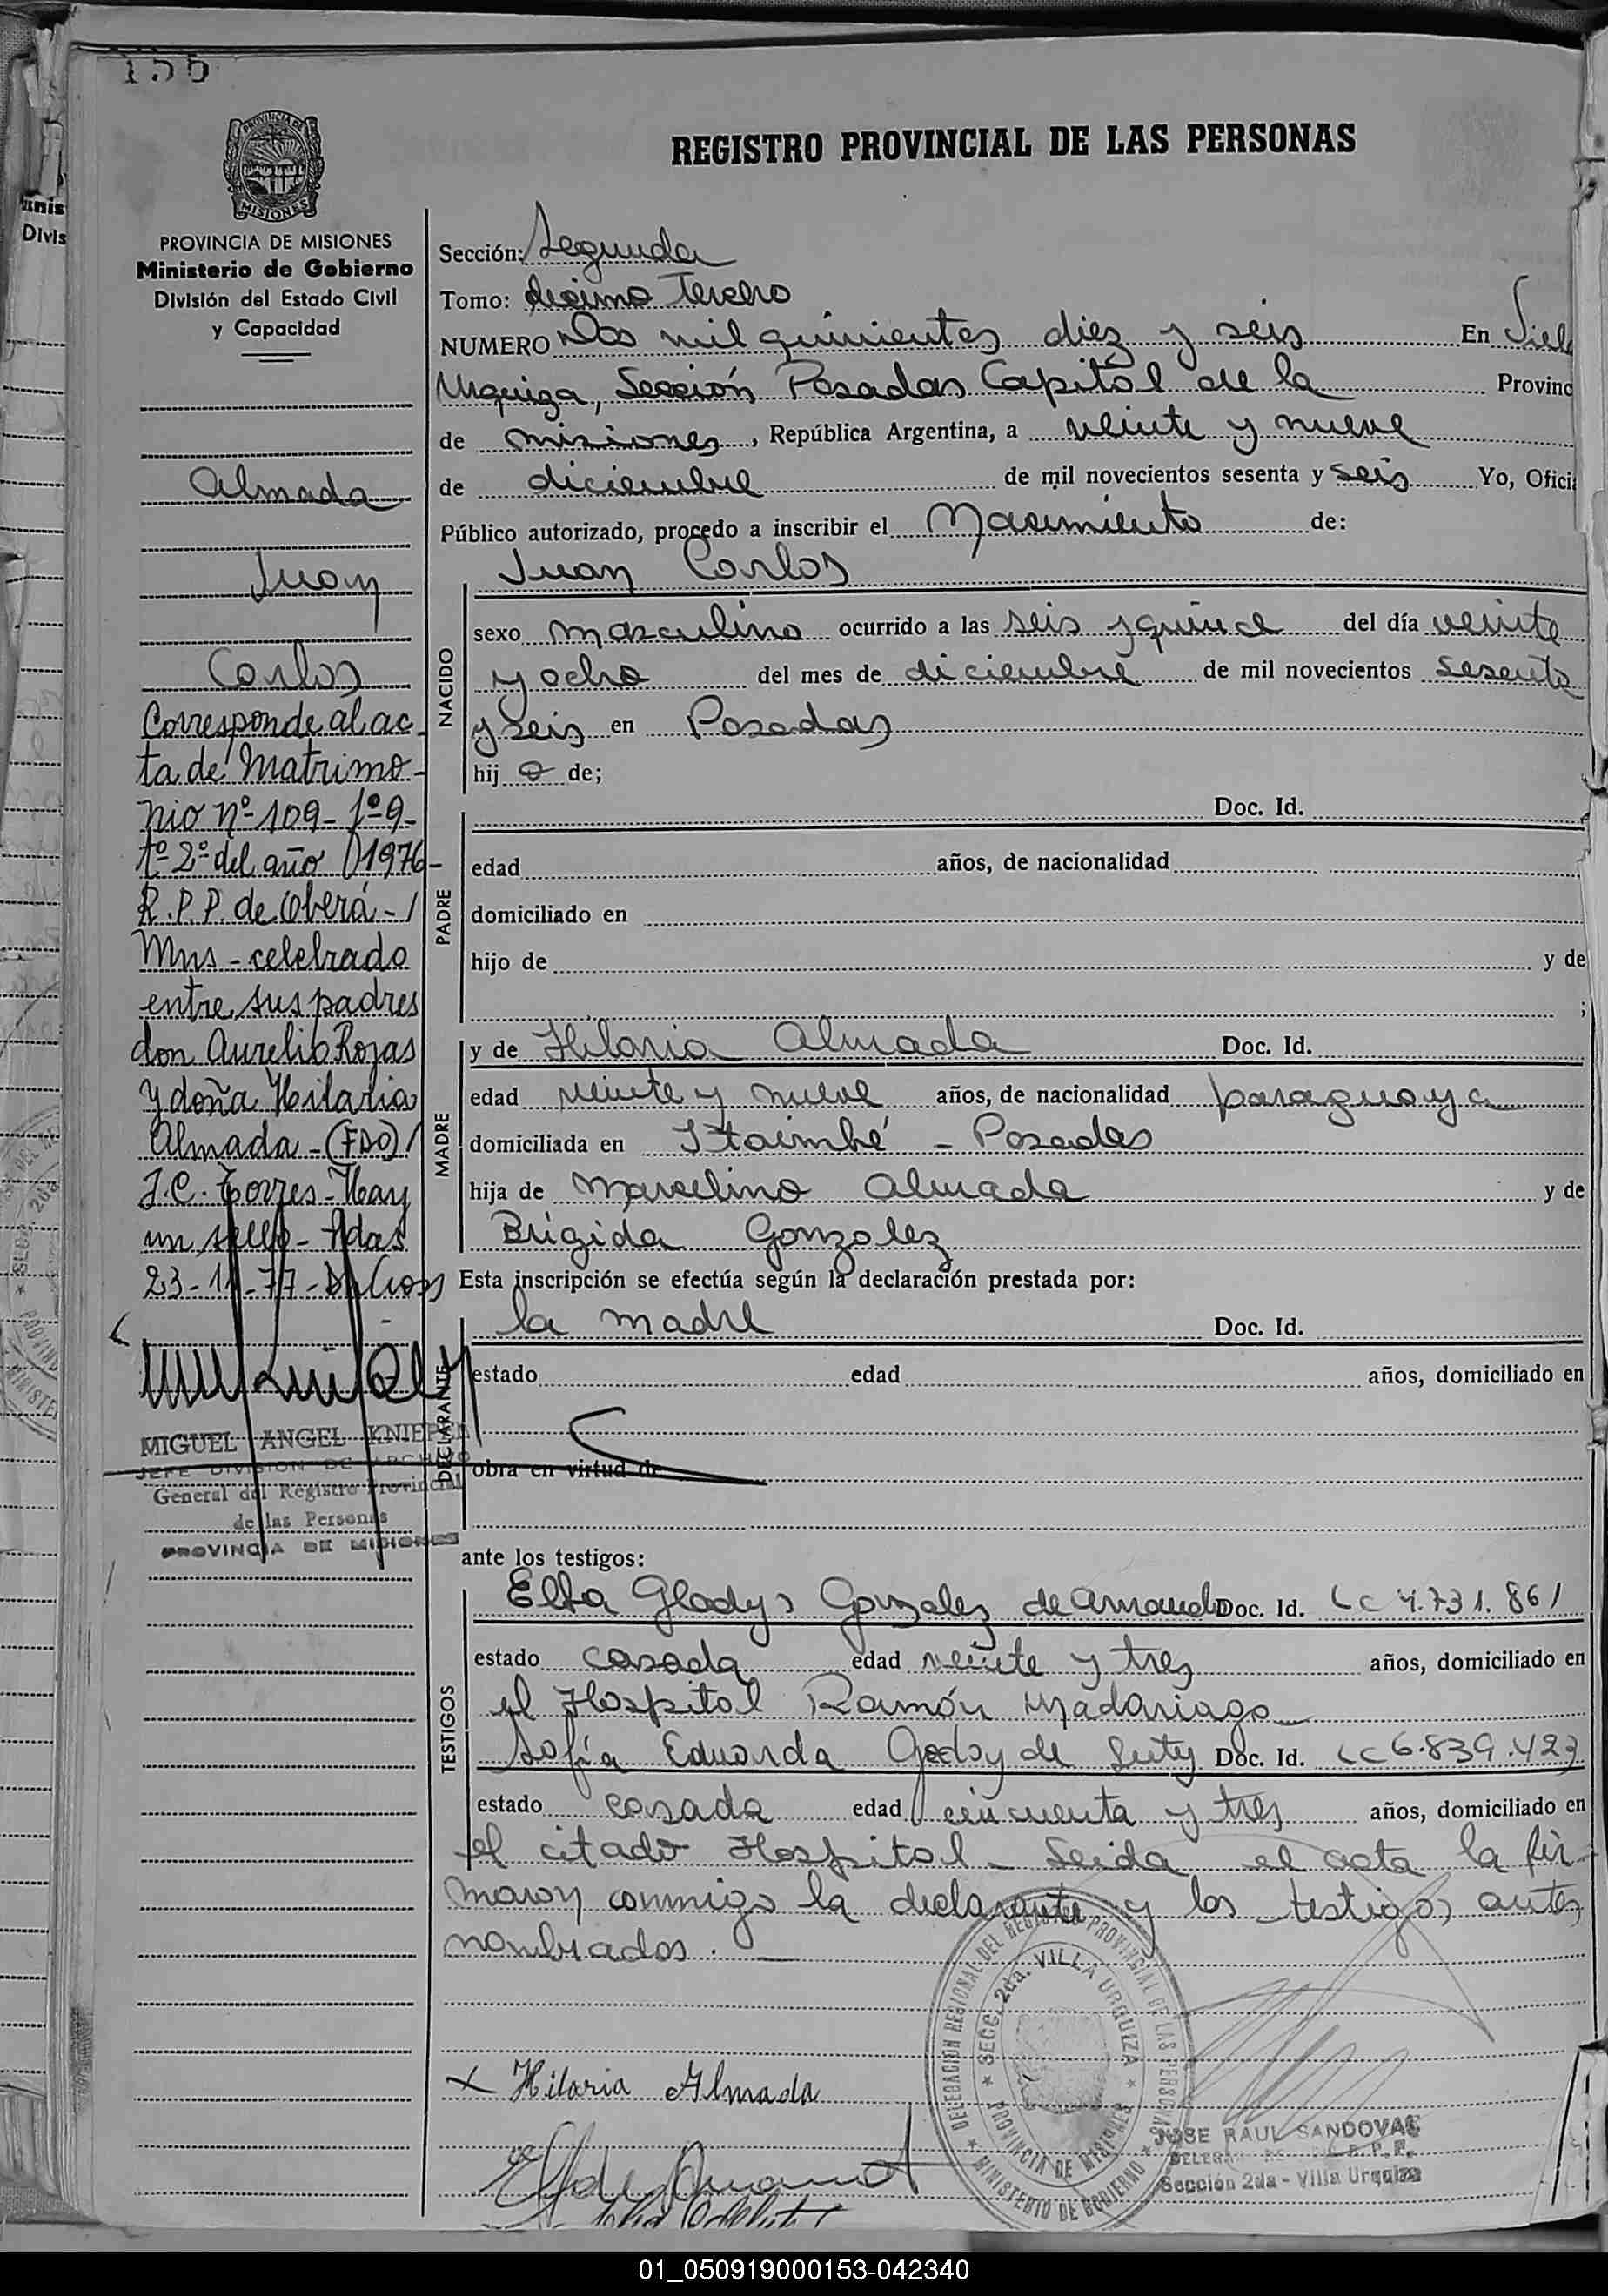 155
REGISTRO PROVINCIAL DE LAS PERSONAS
PROVINCIA DE MISIONES
Ministerio de Gobierno
División del Estado Civil
y Capacidad
Almada
Juan
Carlos
Corresponde al ac-
ta de Matrimo-
nio nº 109 - fº 9 -
tº 2º del año 1976 -
R.P.P. de Oberá - /
Mns - celebrado
entre sus padres
don Aurelio Rojas
y doña Hilaria
Almada - (FDO) /
J.C. Torres - Hay
un sello - Pdas
23-11-77 -
MIGUEL ANGEL
JEFE DIVISION DE ARCHIVO
General del Registro Provincial
de las Personas
PROVINCIA DE MISIONES
Sección: Segunda
Tomo: décimo Tercero
NUMERO Dos mil quinientos diez y seis En
Urquiza, Sección Posadas Capital de la Provinc
de misiones, República Argentina, a veinte y nueve
de diciembre de mil novecientos sesenta y seis Yo, Ofici
Público autorizado, procedo a inscribir el Nacimiento de:
Juan Carlos
NACIDO
sexo masculino ocurrido a las seis y quince del día veinte
y ocho del mes de diciembre de mil novecientos sesenta
y seis en Posadas
hij o de;
PADRE
Doc. Id.
edad años, de nacionalidad
domiciliado en
hijo de y de
;
MADRE
y de Hilaria Almada Doc. Id.
edad veinte y nueve años, de nacionalidad paraguaya
domiciliada en Itaimbé - Posadas
hija de Marcelino Almada y de
Brígida Gonzalez
Esta inscripción se efectúa según la declaración prestada por:
DECLARANTE
la madre Doc. Id.
estado edad años, domiciliado en
obra en virtud de
ante los testigos:
TESTIGOS
Elba Gladys Gonzalez de Doc. Id. LC 4.731.861
estado casada edad veinte y tres años, domiciliado en
el Hospital Ramón Madariaga
Sofía Eduarda Godoy de Doc. Id. LC 6.839.427
estado casada edad cincuenta y tres años, domiciliado en
el citado Hospital - Leida el acta la fir-
maron conmigo la declarante y los testigos antes
nombrados.
DELEGACION REGIONAL DEL REGISTRO PROVINCIAL DE LAS PERSONAS
SECC. 2da. VILLA URQUIZA
PROVINCIA DE MISIONES
MINISTERIO DE GOBIERNO
x Hilaria Almada
JOSE RAUL SANDOVAL
Sección 2da - Villa Urquiza
01_050919000153-042340